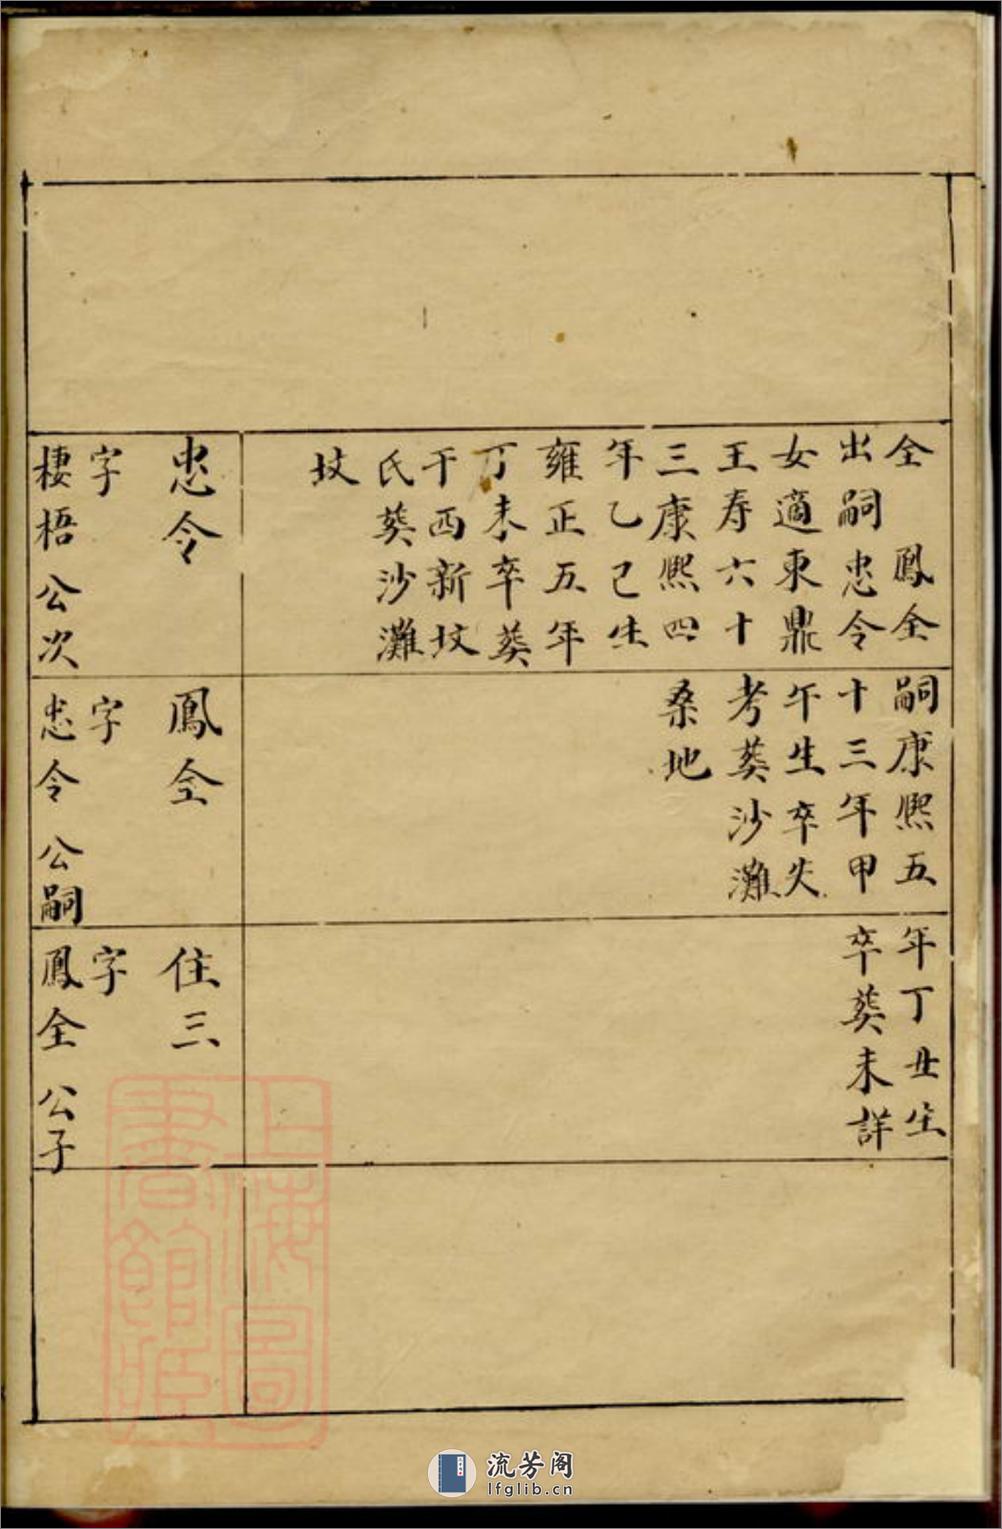 全 鳳仝
出嗣忠令
女適東鼎
王寿六十
三康熙四
年乙己生
雍正五年
丁未卒葵
干西新坟
氏葵沙灘
坟
嗣康熙五
十三年甲
午生卒失
考葵沙灘
桑地
年丁丑生
卒葵未詳
忠令
字
棲梧公次
鳳仝
字
忠令公嗣
住三
字
鳳仝公子
上海圖
書館藏
流芳阁
lfglib.cn